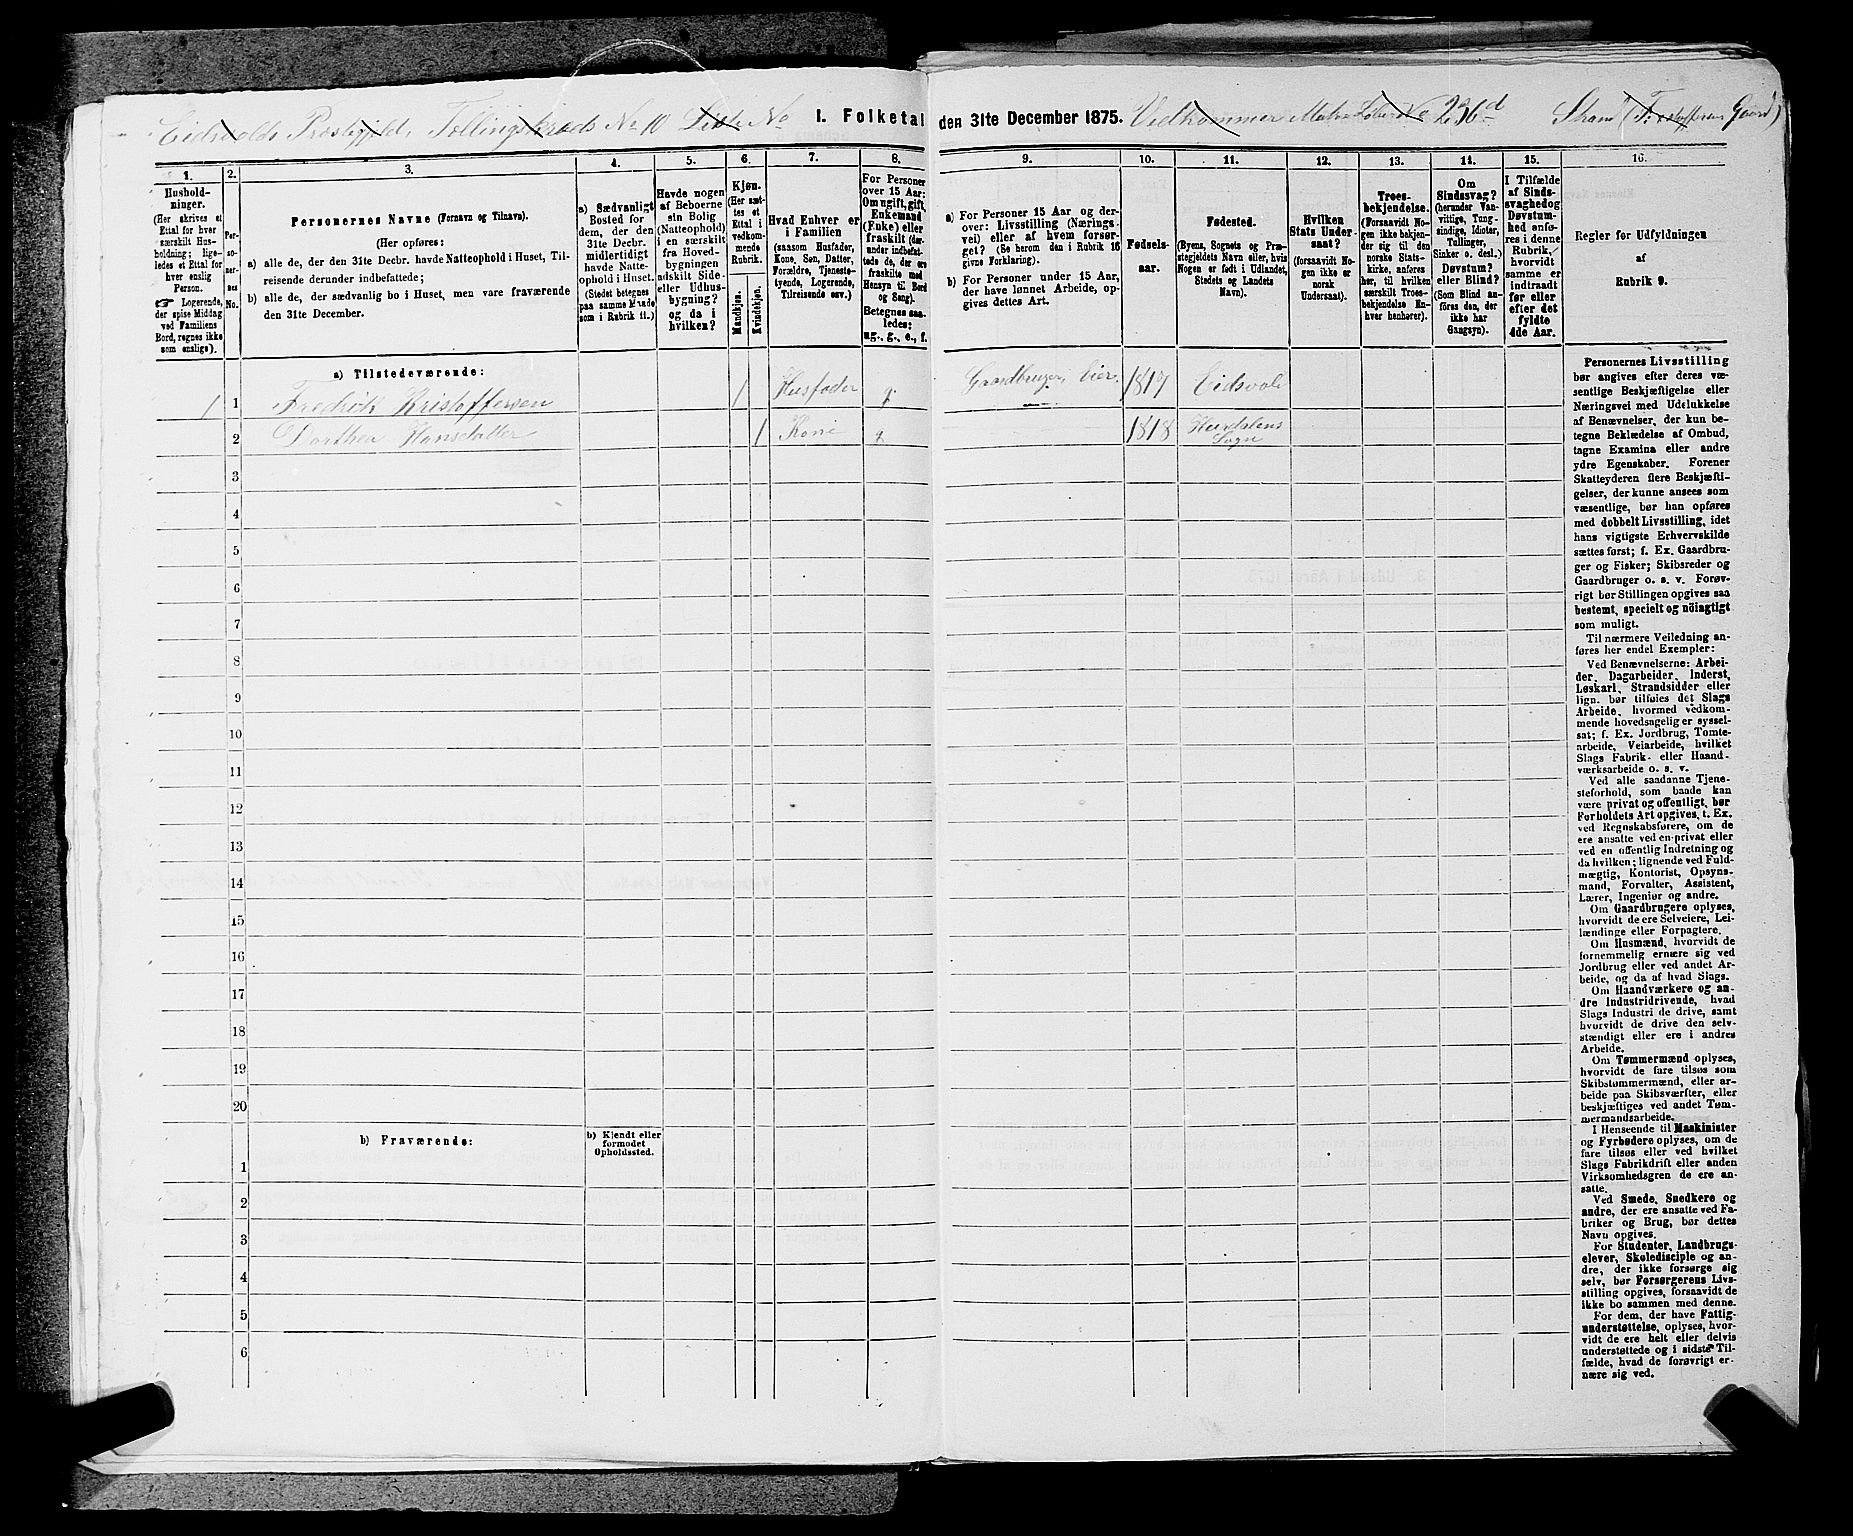 Eidsvolds Præstegjeld. Tællingskreds No 10 Liste No
I. Folketal den 31te December 1875.
Vedkommer Matr. Løbe No 236d Strand
1. 2. 3. 4. 5. 6. 7. 8. 9. 10. 11. 12. 13. 14. 15. 16.
Hushold-
ninger.
(Her skrives et
Ettal for hver
særskilt Hus-
holdning; lige-
ledes et Ettal for
hver enslig
Person.
☞ Logerende,
der spise Middag
ved Familiens
Bord, regnes ikke
som enslige).
Per-
so-
ner-
nes
No.
Personernes Navne (Fornavn og Tilnavn).
(Her opføres:
a) alle de, der den 31te Decbr. havde Natteophold i Huset, Til-
reisende derunder indbefattede;
b) alle de, der sædvanlig bo i Huset, men vare fraværende
den 31te December.
a) Sædvanligt
Bosted for
dem, der den
31te Decbr.
midlertidigt
havde Natte-
ophold i Huset.
(Stedet betegnes
paa samme Maade
som i Rubrik 11.)
Havde nogen
af Beboerne
sin Bolig
(Natteophold)
i en særskilt
fra Hoved-
bygningen
adskilt Side-
eller Udhus-
bygning?
og da i
hvilken?
Kjøn.
(Her sæt-
tes et
Ettal i
vedkom-
mende
Rubrik.
Mandkjøn.
Kvindekjøn.
Hvad Enhver er
i Familien
(saasom Husfader,
Kone, Søn, Datter,
Forældre, Tjeneste-
tyende, Logerende,
Tilreisende osv.)
For Personer
over 15 Aar:
Om ugift, gift,
Enkemand
(Enke) eller
fraskilt (der-
under indbefat-
tede de, der ere
fraskilte med
Hensyn til Bord
og Seng).
Betegnes saa-
ledes:
ug., g., e., f.
a) For Personer 15 Aar og der-
over: Livsstilling (Nærings-
vei) eller af hvem forsør-
get? (Se herom den i Rubrik 16
givne Forklaring).
b) For Personer under 15 Aar,
der have lønnet Arbeide, op-
gives dettes Art.
Fødsels-
aar.
Fødested.
(Byens, Sognets og Præ-
stegjeldets Navn eller, hvis
Nogen er født i Udlandet,
Stedets og Landets
Navn).
Hvilken
Stats Under-
saat?
(forsaavidt No-
gen ikke er
norsk
Undersaat).
Troes-
bekjendelse.
(Forsaavidt No-
gen ikke bekjen-
der sig til den
norske Stats-
kirke, anføres
her, til hvilken
særskilt Troes-
bekjendelse En-
hver henhører).
Om
Sindssvag?
(herunder Van-
vittige, Tung-
sindige, Idioter,
Tullinger,
Sinker o. desl.)
Døvstum?
eller Blind?
(Som Blind an-
føres den, der
ikke har
Gangsyn).
I Tilfælde
af Sinds-
svaghed og
Døvstum-
hed anfø-
res i denne
Rubrik,
hvorvidt
samme er
indtraadt
før eller
efter det
fyldte
4de Aar.
Regler for Udfyldningen
af
Rubrik 9.
a) Tilstedeværende:
1 1 Fredrik Kristoffersen 1 Husfader g. Gaardbruger, Eier. 1817 Eidsvold
2 Dorthea Hansdatter 1 Kone g 1818 Hurdalens Sogn
3
4
5
6
7
8
9
10
11
12
13
14
15
16
17
18
19
20
b) Fraværende:
b) Kjendt eller
formodet
Opholdssted.
1
2
3
4
5
6
Personernes Livsstilling
bør angives efter deres væ-
sentlige Beskjæftigelse eller
Næringsvei med Udelukkelse
af Benævnelser, der kun be-
tegne Beklædelse af Ombud,
tagne Examina eller andre
ydre Egenskaber. Forener
Skatteyderen flere Beskjæfti-
gelser, der kunne ansees som
væsentlige, bør han opføres
med dobbelt Livsstilling, idet
hans vigtigste Erhvervskilde
sættes først; f. Ex. Gaardbru-
ger og Fisker; Skibsreder og
Gaardbruger o. s. v. Forøv-
rigt bør Stillingen opgives saa
bestemt, specielt og nöiagtigt
som muligt.
Til nærmere Veiledning an-
føres her endel Exempler:
Ved Benævnelserne: Arbei-
der, Dagarbeider, Inderst,
Løskarl, Strandsidder eller
lign. bør tilføies det Slags
Arbeide, hvormed vedkom-
mende hovedsagelig er syssel-
sat; f. Ex. Jordbrug, Tomte-
arbeide, Veiarbeide, hvilket
Slags Fabrik- eller Haand-
værksarbeide o. s. v.
Ved alle saadanne Tjene-
steforhold, som baade kan
være privat og offentligt, bør
Forholdets Art opgives, t. Ex.
ved Regnskabsførere, om de
ere ansatte ved en privat eller
ved en offentlig Indretning og
da hvilken; lignende ved Fuld-
mægtig, Kontorist, Opsyns-
mand, Forvalter, Assistent,
Lærer, Ingeniør og andre.
Om Gaardbrugere oplyses,
hvorvidt de ere Selveiere, Lei-
lændinge eller Forpagtere.
Om Husmænd, hvorvidt de
fornemmelig ernære sig ved
Jordbrug eller ved andet Ar-
beide, og da af hvad Slags.
Om Haandværkere og an-
dre Industridrivende, hvad
Slags Industri de drive, samt
hvorvidt de drive den selv-
stændigt eller ere i andres
Arbeide.
Om Tømmermænd oplyses,
hvorvidt de fare tilsøs som
Skibstømmermænd, eller ar-
beide paa Skibsværfter, eller
beskjæftiges ved andet Tøm-
mermandsarbeide.
I Henseende til Maskinister
og Fyrbødere oplyses, om de
fare tilsøs eller ved hvilket
Slags Fabrikdrift eller anden
Virksomhedsgren de ere an-
satte.
Ved Smede, Snedkere og
andre, der ere ansatte ved Fa-
briker og Brug, bør dettes
Navn opgives.
For Studenter, Landbrugs-
elever, Skoledisciple og an-
dre, der ikke forsørge sig
selv, bør Forsørgerens Livs-
stilling opgives, forsaavidt de
ikke bo sammen med denne.
For dem, der have Fattig-
understøttelse, oplyses, hvor-
vidt de ere helt eller delvis
understøttede og i sidste Til-
fælde, hvad de forøvrigt er-
nære sig ved.